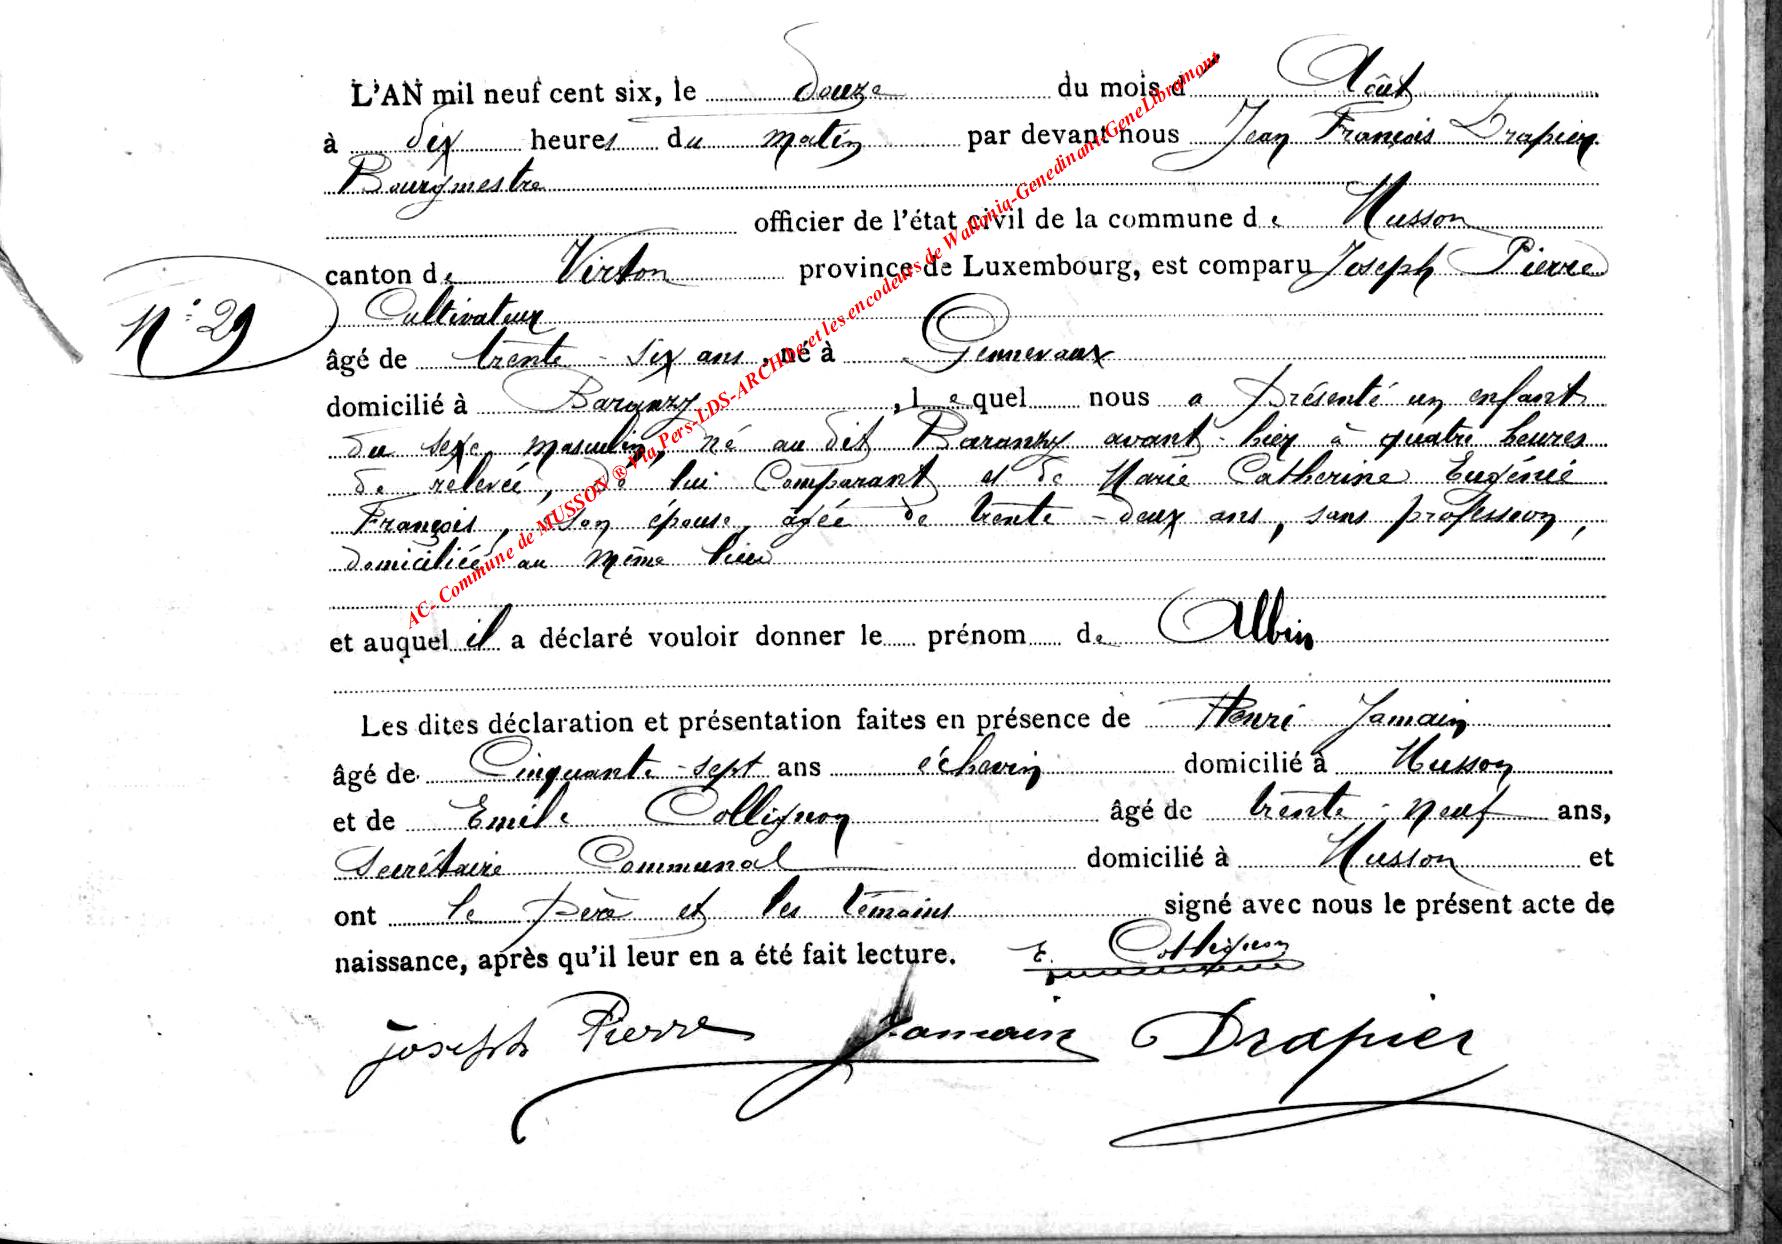 L'AN mil neuf cent six, le douze du mois d' Août
à dix heures du matin par devant nous Jean François Drapier
Bourgmestre
officier de l'état civil de la commune de Musson
canton de Virton province de Luxembourg, est comparu Joseph Pierre
N° 29
Cultivateur
âgé de trente-six ans, né à Gennevaux
domicilié à Baranzy, lequel nous a présenté un enfant
du sexe masculin, né au dit Baranzy avant-hier à quatre heures
de relevée, de lui Comparant et de Marie Catherine Eugénie
François, son épouse, agée de trente-deux ans, sans profession,
domiciliée au même lieu
et auquel il a déclaré vouloir donner le prénom de Albin
Les dites déclaration et présentation faites en présence de Henri Jamain
âgé de Cinquante-sept ans échevin domicilié à Musson
et de Emile Collignon âgé de trente-neuf ans,
Secrétaire Communal domicilié à Musson et
ont le père et les témoins signé avec nous le présent acte de
naissance, après qu'il leur en a été fait lecture. E. Collignon
Joseph Pierre Jamain Drapier
AC- Commune de MUSSON ® Via Pers-LDS-ARCHbe et les encodeurs de Wallonia-Genedinant-GeneLibramont